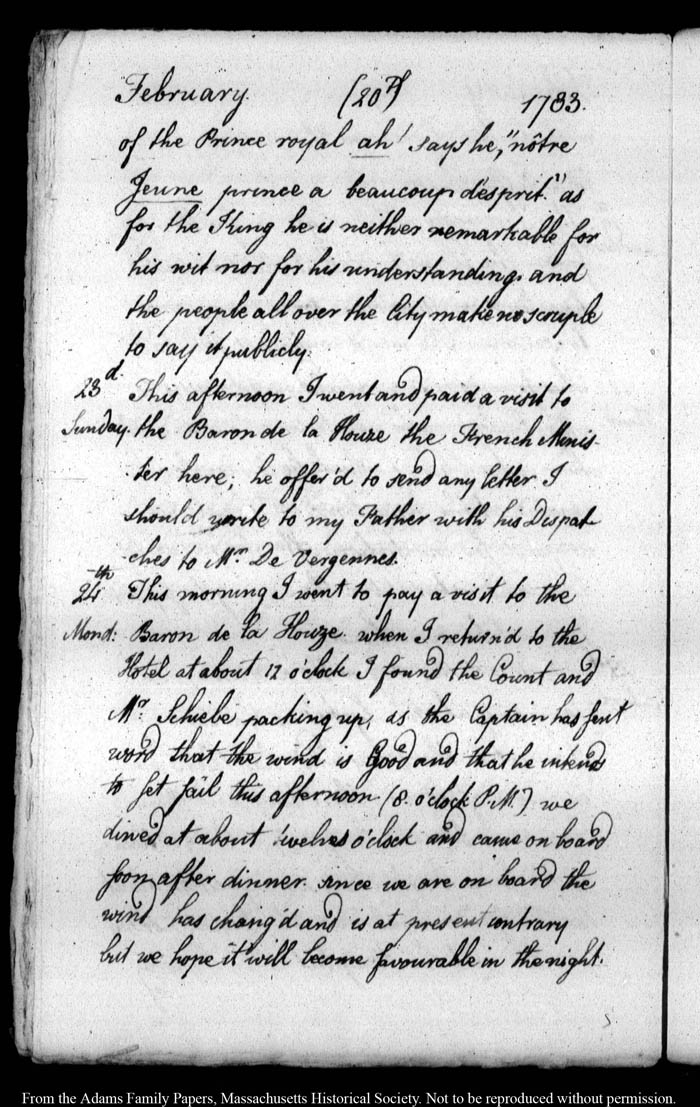 February. (20th) 1783.
of the Prince royal ah! says he, "nôtre
Jeune prince a beaucoup d'esprit." as
for the King he is neither remarkable for
his wit nor for his understanding. and
the people all over the City make no scruple
to say it publicly.
23d. This afternoon I went and paid a visit to
Sunday. the Baron de la Houze the French Minis-
-ter here; he offer'd to send any letter I
should write to my Father with his Despat-
-ches to Mr. De Vergennes.
24th This morning I went to pay a visit to the
Mond: Baron de la Houze. when I return'd to the
Hotel at about 12 o'clock I found the Count and
Mr. Schiebe packing up, as the Captain has sent
word that the wind is Good and that he intends
to set sail this afternoon (8. o'clock P.M.) we
dined at about twelves o'clock and came on board
soon after dinner. since we are on board the
wind has chang'd and is at present contrary
but we hope it will become favourable in the night.
From the Adams Family Papers, Massachusetts Historical Society. Not to be reproduced without permission.